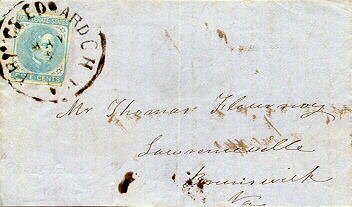 FIVE CENTS
Mr Thomas Flournoy
Lawrenceville
Brunswick
Va